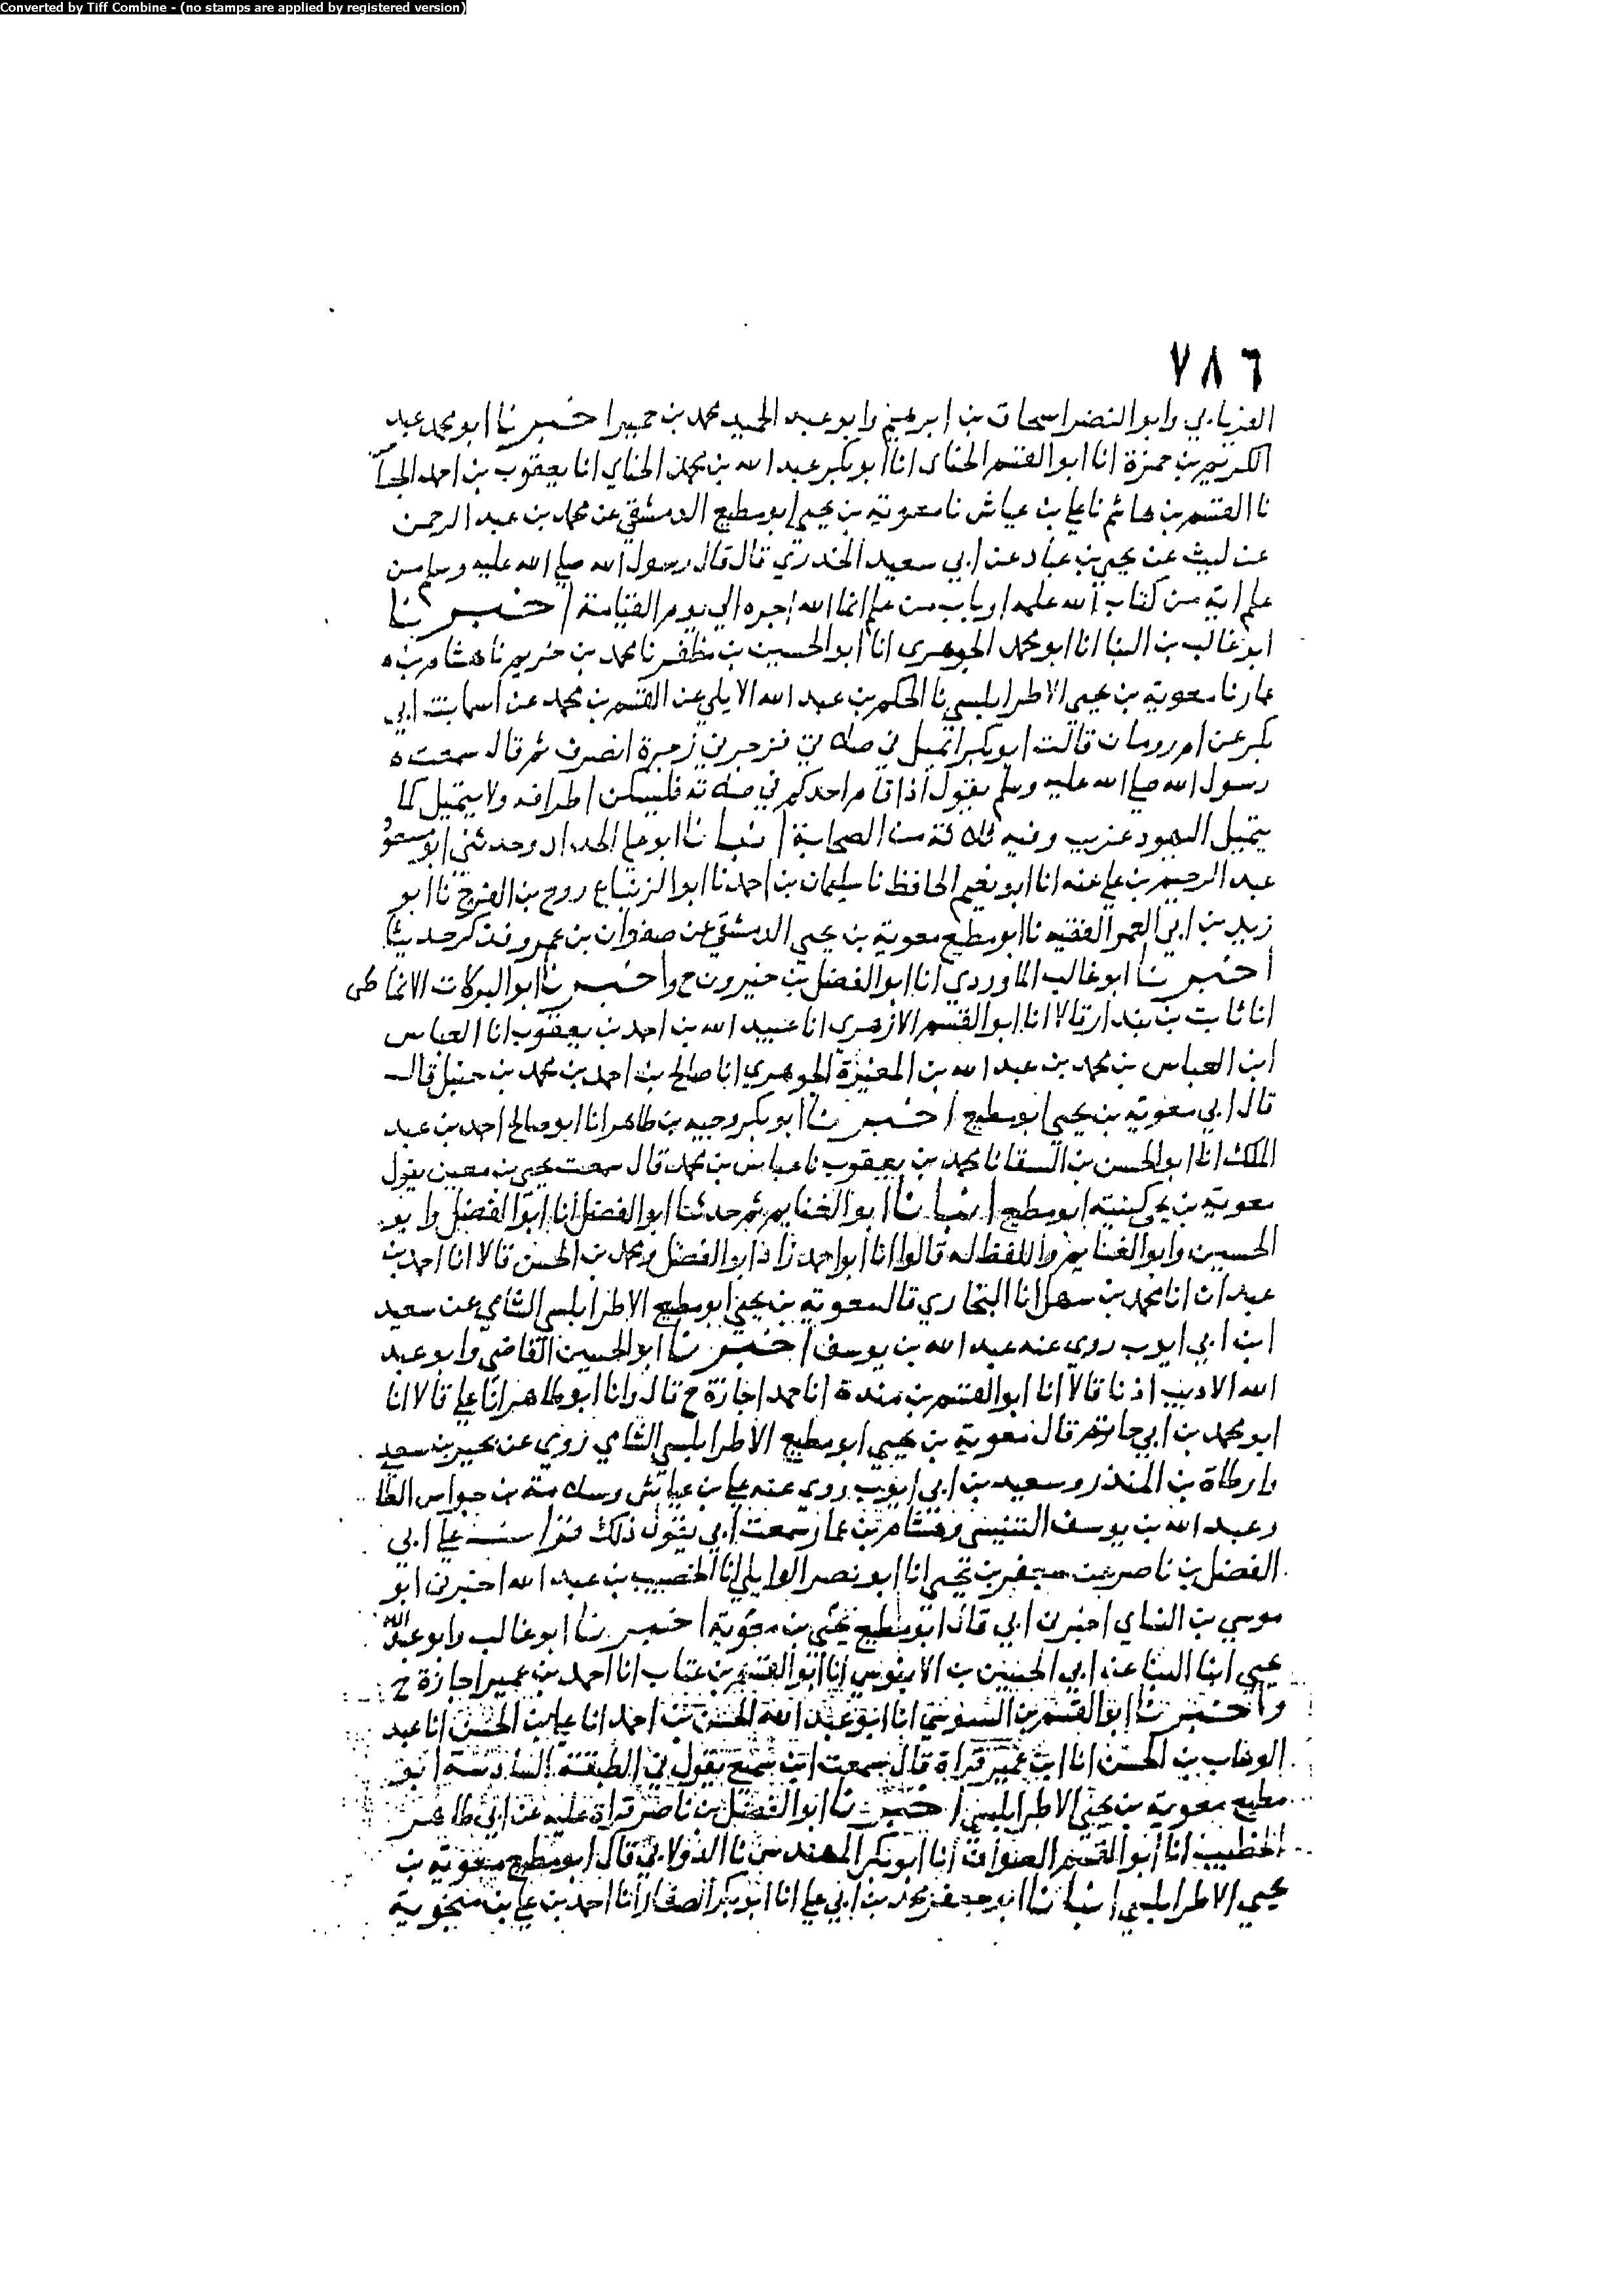 Converted by Tiff Combine - (no stamps are applied by registered version)
٧٨٦
الفريابي وابو النضر اسحاق بن ابرهيم وابو عبد الحميد محمد بن حمير اخبرنا ابو محمد عبد
الكريم بن حمزة انا ابو القسم الحناي انا ابو بكر عبد الله بن محمد الحناي انا يعقوب بن احمد الجصا
نا القسم بن هاشم نا علي بن عياش نا معوية بن يحيى ابو مطيع الدمشقي عن محمد بن عبد الرحمن
عن ليث عن يحيى بن عباد عن ابي سعيد الخدري قال قال رسول الله صلي الله عليه وسلم من
علم اية من كتاب الله علمه او باب من علم انما الله اجره الي يوم القيامة اخبرنا
ابو غالب بن البنا انا ابو محمد الجوهري انا ابو الحسين بن مظفر نا محمد بن خريم نا هشام بن
عمار نا معوية بن يحيى الاطرابلسي نا الحكم بن عبد الله الايلي عن القسم بن محمد عن اسما بنت ابي
بكر عن ام رومان قالت ابو بكر اتميل في صلاتي فزجرني زجرة انصرف ثم قال سمعت
رسول الله صلي الله عليه وسلم يقول اذا قام احدكم في صلاته فليسكن اطرافه ولا يتميل كما
يتميل اليهود غريب وفيه ثلاثة من الصحابة انبانا ابو علي الحداد وحدثني ابو مسعود
عبد الرحيم بن علي عنه انا ابو نعيم الحافظ نا سليمان بن احمد نا ابو الزنباع روح بن الفرج نا ابو
زيد بن ابي الغمر الفقيه نا ابو مطيع معوية بن يحيى الدمشقي عن صفوان بن عمرو فذكر حديثا
اخبرنا ابو غالب الماوردي انا ابو الفضل بن خيرون ح واخبرنا ابو البركات الانماطي
انا ثابت بن بندار قالا انا ابو القسم الازهري انا عبيد الله بن احمد بن يعقوب انا العباس
ابن العباس بن محمد بن عبد الله بن المغيرة الجوهري انا صالح بن احمد بن محمد بن حنبل قال
قال ابي معوية بن يحيى ابو مطيع اخبرنا ابو بكر وجيه بن طاهر انا ابو صالح احمد بن عبد
الملك انا ابو الحسن بن السقا نا محمد بن يعقوب نا عباس بن محمد قال سمعت يحيى بن معين يقول
معوية بن يحيى كنيته ابو مطيع انبانا ابو الغنايم ثم حدثنا ابو الفضل انا ابو الفضل وابو
الحسين وابو الغنايم واللفظ له قالوا انا ابو احمد زاد ابو الفضل ومحمد بن الحسن قالا انا احمد بن
عبدان انا محمد بن سهل انا البخاري قال معوية بن يحيى ابو مطيع الاطرابلسي الشامي عن سعيد
ابن ابي ايوب روي عنه عبد الله بن يوسف اخبرنا ابو الحسين القاضي وابو عبد
الله الاديب اذنا قالا انا ابو القسم بن مندة انا حمد اجازة ح قال وانا ابو طاهر انا علي قالا انا
ابو محمد بن ابي حاتم قال معوية بن يحيى ابو مطيع الاطرابلسي الشامي روي عن بحير بن سعد
وارطاة بن المنذر وسعيد بن ابي ايوب روي عنه علي بن عياش وسلامة بن جواس الطا
وعبد الله بن يوسف التنيسي وهشام بن عمار سمعت ابي يقول ذلك قرات علي ابي
الفضل بن ناصر عن جعفر بن يحيى انا ابو نصر الوايلي انا الخصيب بن عبد الله اخبرني ابو
موسي بن النساي اخبرني ابي قال ابو مطيع يحيى بن معوية اخبرنا ابو غالب وابو عبد الله
يحيى ابنا البنا عن ابي الحسين بن الابنوسي انا ابو القسم بن عتاب انا احمد بن عمير اجازة ح
واخبرنا ابو القسم بن السوسي انا ابو عبد الله الحسن بن احمد انا علي بن الحسن انا عبد
الوهاب بن الحسن انا ابن عمير قراة قال سمعت ابن سميع يقول في الطبقة السادسة ابو
مطيع معوية بن يحيى الاطرابلسي اخبرنا ابو الفضل بن ناصر قراة عليه عن ابي طاهر
الخطيب انا ابو القسم الصواف انا ابو بكر المهندس نا الدولابي قال ابو مطيع معوية بن
يحيي الاطرابلسي انبانا ابو جعفر محمد بن ابي علي انا ابو بكر الصفار انا احمد بن علي بن منجوية